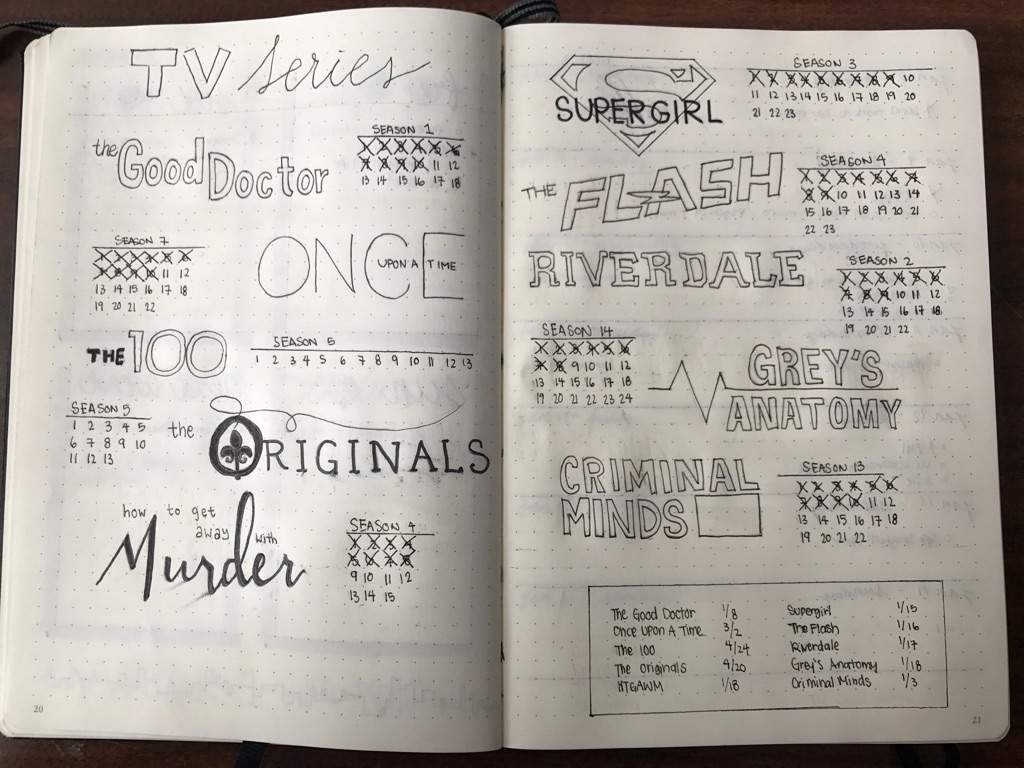 TV Series
the Good Doctor
SEASON 1
1 2 3 4 5 6
7 8 9 10 11 12
13 14 15 16 17 18
SEASON 7
1 2 3 4 5 6
7 8 9 10 11 12
13 14 15 16 17 18
19 20 21 22
ONCE
UPON A TIME
THE 100
SEASON 5
1 2 3 4 5 6 7 8 9 10 11 12 13
SEASON 5
1 2 3 4 5
6 7 8 9 10
11 12 13
the ORIGINALS
how to get
away with
Murder
SEASON 4
1 2 3 4
5 6 7 8
9 10 11 12
13 14 15
20
S
SUPERGIRL
SEASON 3
1 2 3 4 5 6 7 8 9 10
11 12 13 14 15 16 17 18 19 20
21 22 23
THE FLASH
SEASON 4
1 2 3 4 5 6 7
8 9 10 11 12 13 14
15 16 17 18 19 20 21
22 23
RIVERDALE
SEASON 2
1 2 3 4 5 6
7 8 9 10 11 12
13 14 15 16 17 18
19 20 21 22
SEASON 14
1 2 3 4 5 6
7 8 9 10 11 12
13 14 15 16 17 18
19 20 21 22 23 24
GREY'S
ANATOMY
CRIMINAL
MINDS
SEASON 13
1 2 3 4 5 6
7 8 9 10 11 12
13 14 15 16 17 18
19 20 21 22
The Good Doctor 1/8
Once Upon A Time 3/2
The 100 4/24
The Originals 4/20
HTGAWM 1/18
Supergirl 1/15
The Flash 1/16
Riverdale 1/17
Grey's Anatomy 1/18
Criminal Minds 1/3
21